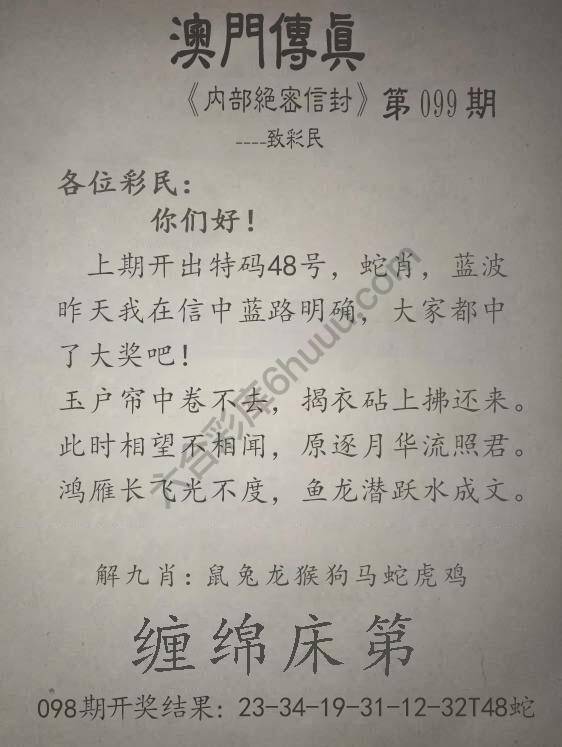 澳門傳眞
《内部絕密信封》第099期
----致彩民
各位彩民：
你们好！
上期开出特码48号，蛇肖，蓝波
昨天我在信中蓝路明确，大家都中
了大奖吧！
玉户帘中卷不去，揭衣砧上拂还来。
此时相望不相闻，原逐月华流照君。
鸿雁长飞光不度，鱼龙潜跃水成文。
六合彩库6huuu.com
解九肖：鼠兔龙猴狗马蛇虎鸡
缠绵床第
098期开奖结果：23-34-19-31-12-32T48蛇